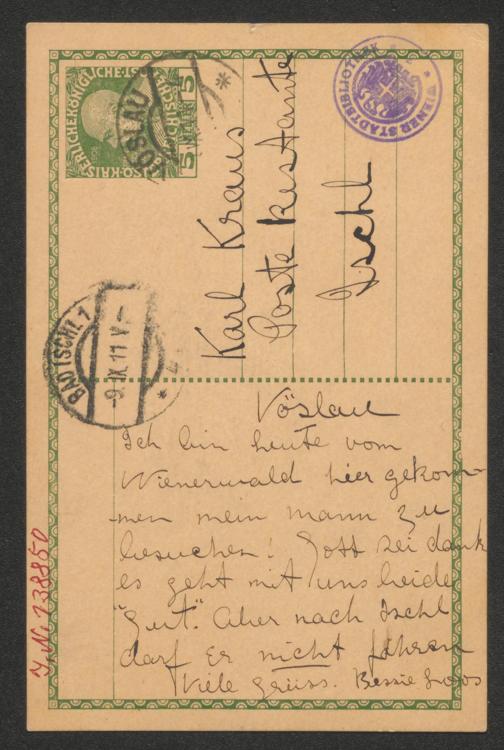 Karl Kraus
Poste Restante
Ischl
KAISERLICHE KÖNIGLICHE POST
5
5
VÖSLAU
WIENER STADTBIBLIOTHEK
BAD ISCHL 1
-9.IX 11 V-
Vöslau
Ich bin heute vom
Wienerwald hier gekom
men mein mann zu
besuchen! Gott sei dank
es geht mit uns beide
"Gut". Aber nach Ischl
darf Er nicht fahren
Viele grüss. Bessie Loos
J. N. 138850